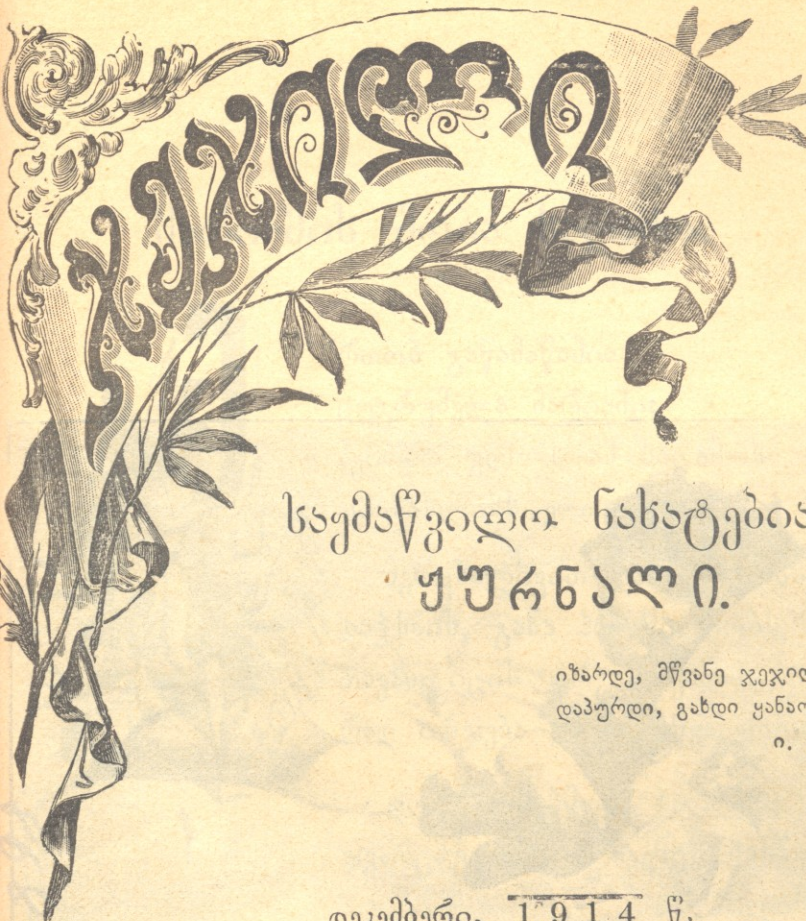 ჯეჯილი
საყმაწვილო ნახატებია
ჟურნალი.
იზარდე, მწვანე ჯეჯილ
დაპურდი, გახდი ყანაო
ი.
დეკემბერი, 1914 წ.